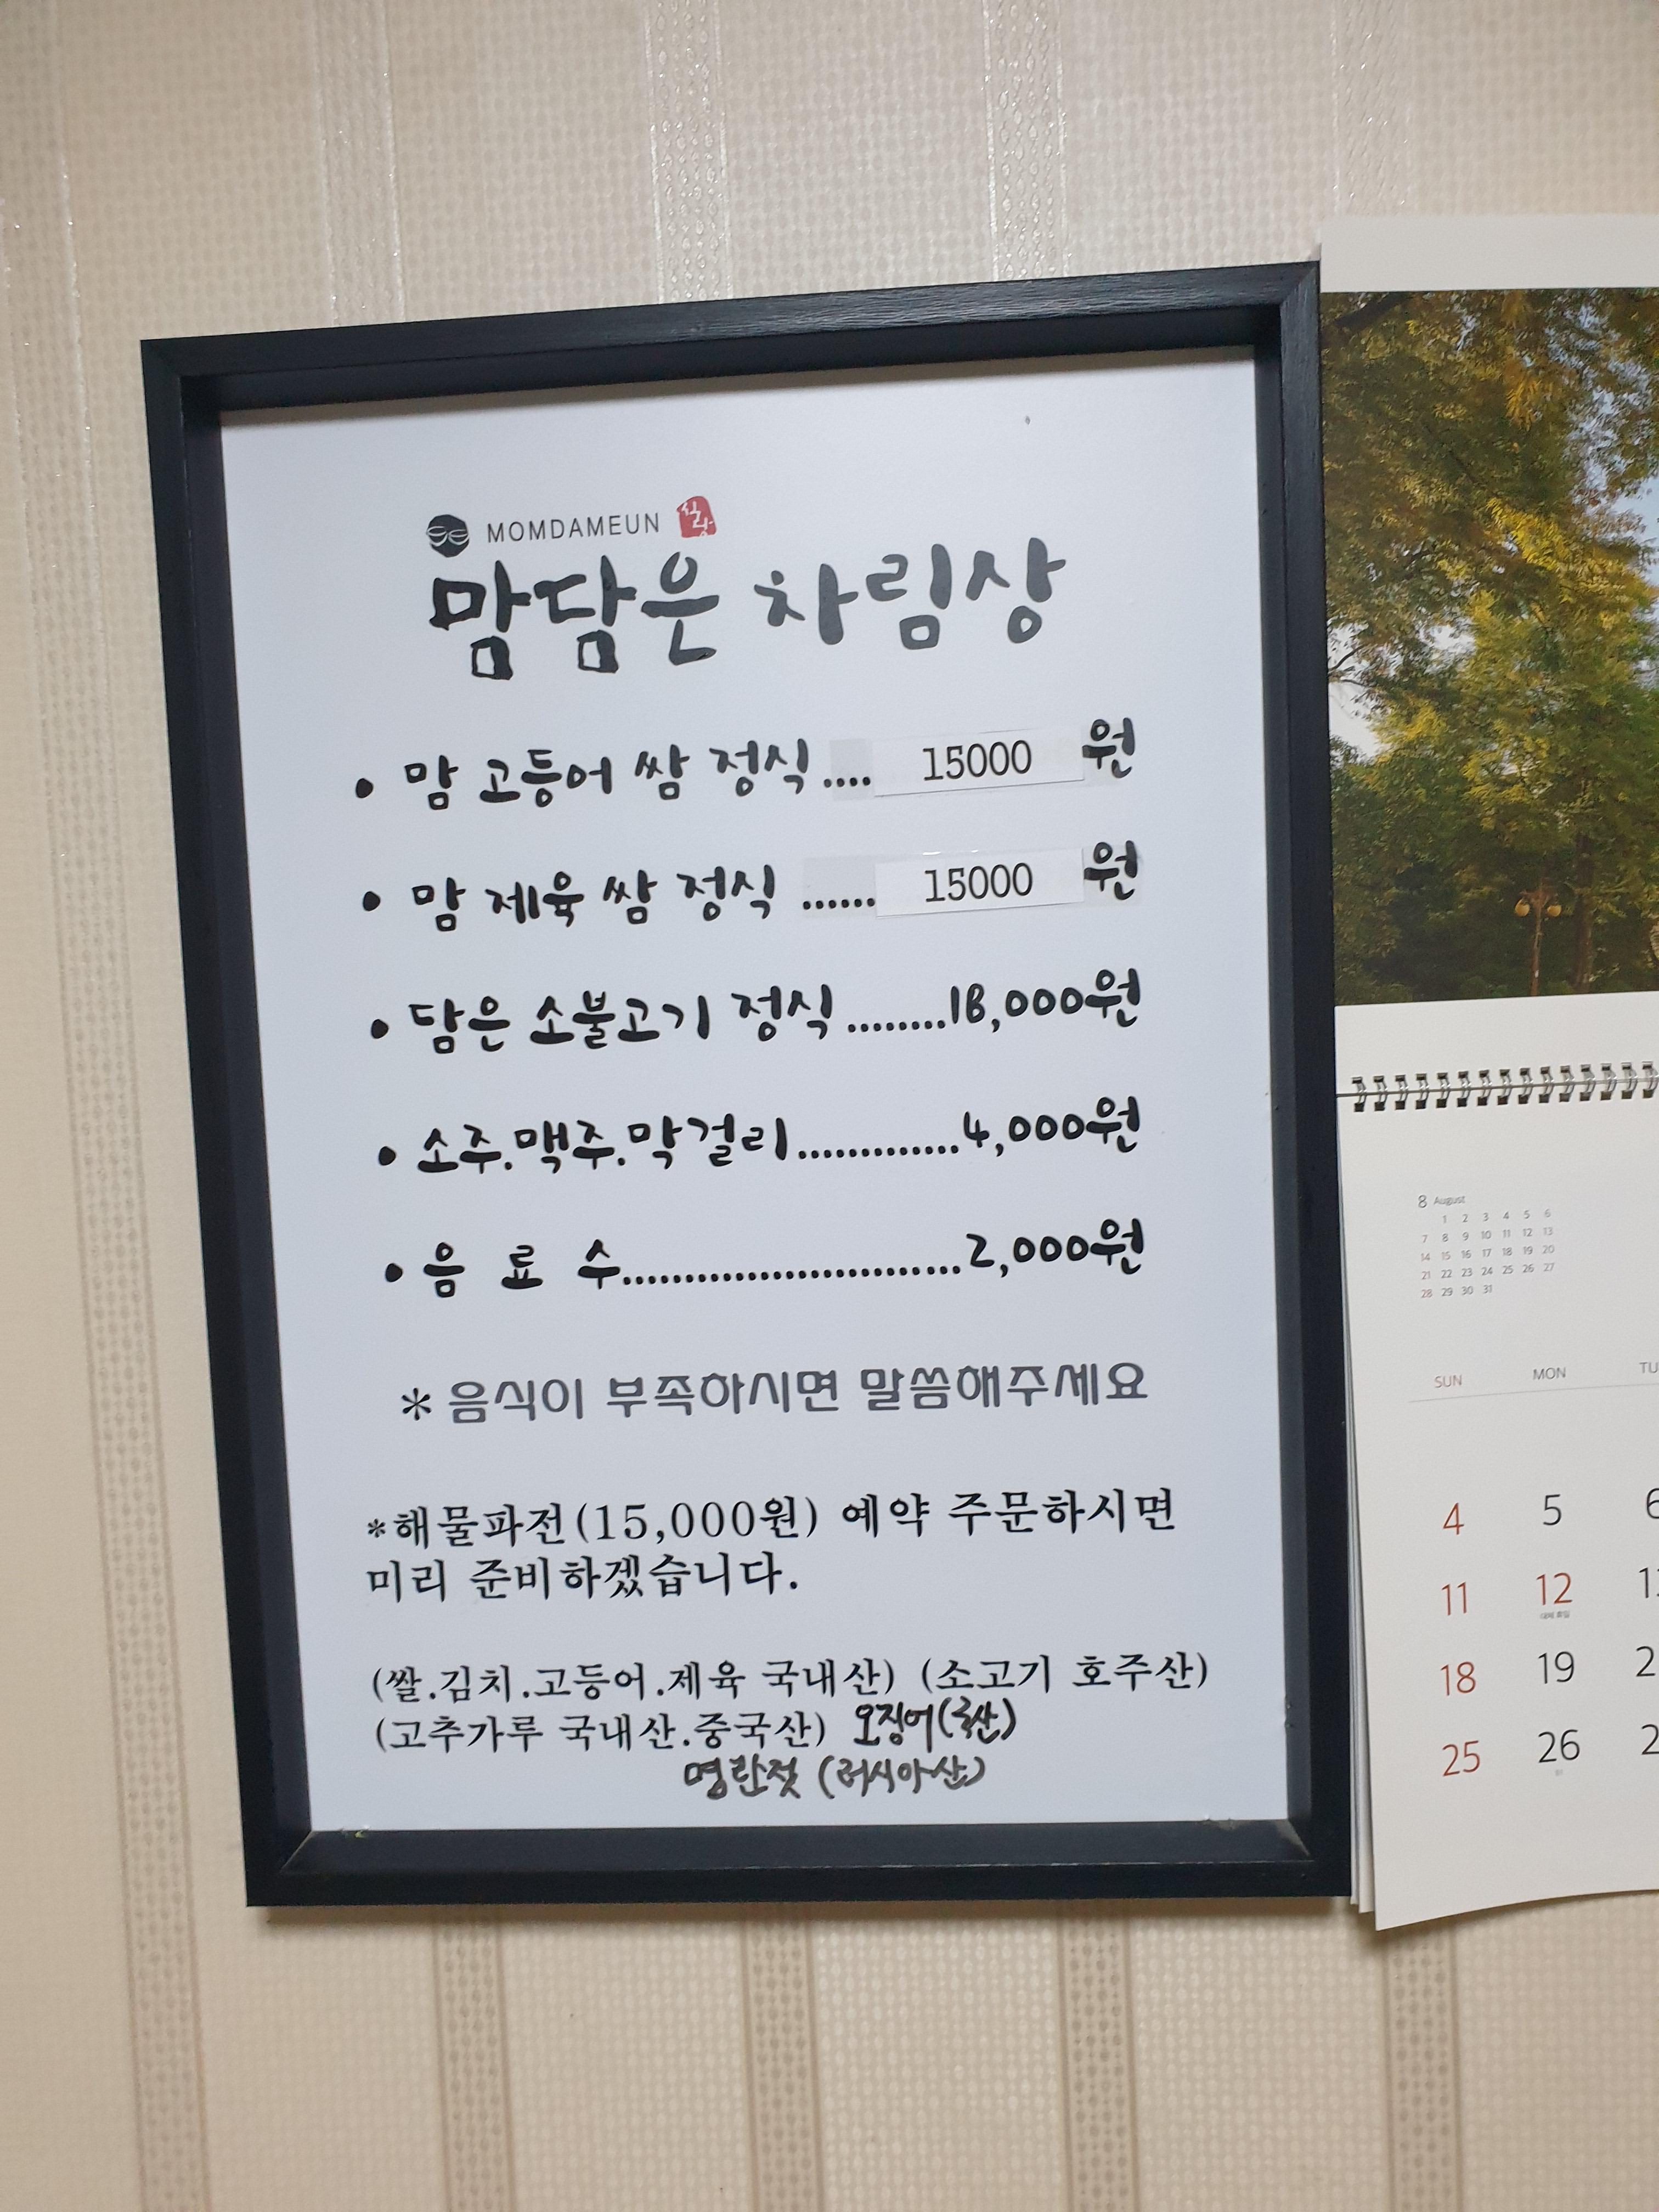 MOMDAMEUN
맘담은 차림상
• 맘 고등어 쌈 정식.... 15000 원
• 맘 제육 쌈 정식 ...... 15000 원
• 담은 소불고기 정식........18,000원
• 소주.맥주.막걸리.............4,000원
• 음 료 수...........................2,000원
* 음식이 부족하시면 말씀해주세요
*해물파전(15,000원) 예약 주문하시면
미리 준비하겠습니다.
(쌀.김치.고등어.제육 국내산) (소고기 호주산)
(고추가루 국내산.중국산) 오징어(국산)
명란젓 (러시아산)
8 August
1 2 3 4 5 6
7 8 9 10 11 12 13
14 15 16 17 18 19 20
21 22 23 24 25 26 27
28 29 30 31
SUN MON TU
4 5 6
11 12
대체 휴일
18 19 2
25 26 2